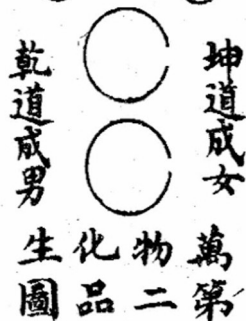 坤道成女
乾道成男
萬物化生
第二品圖